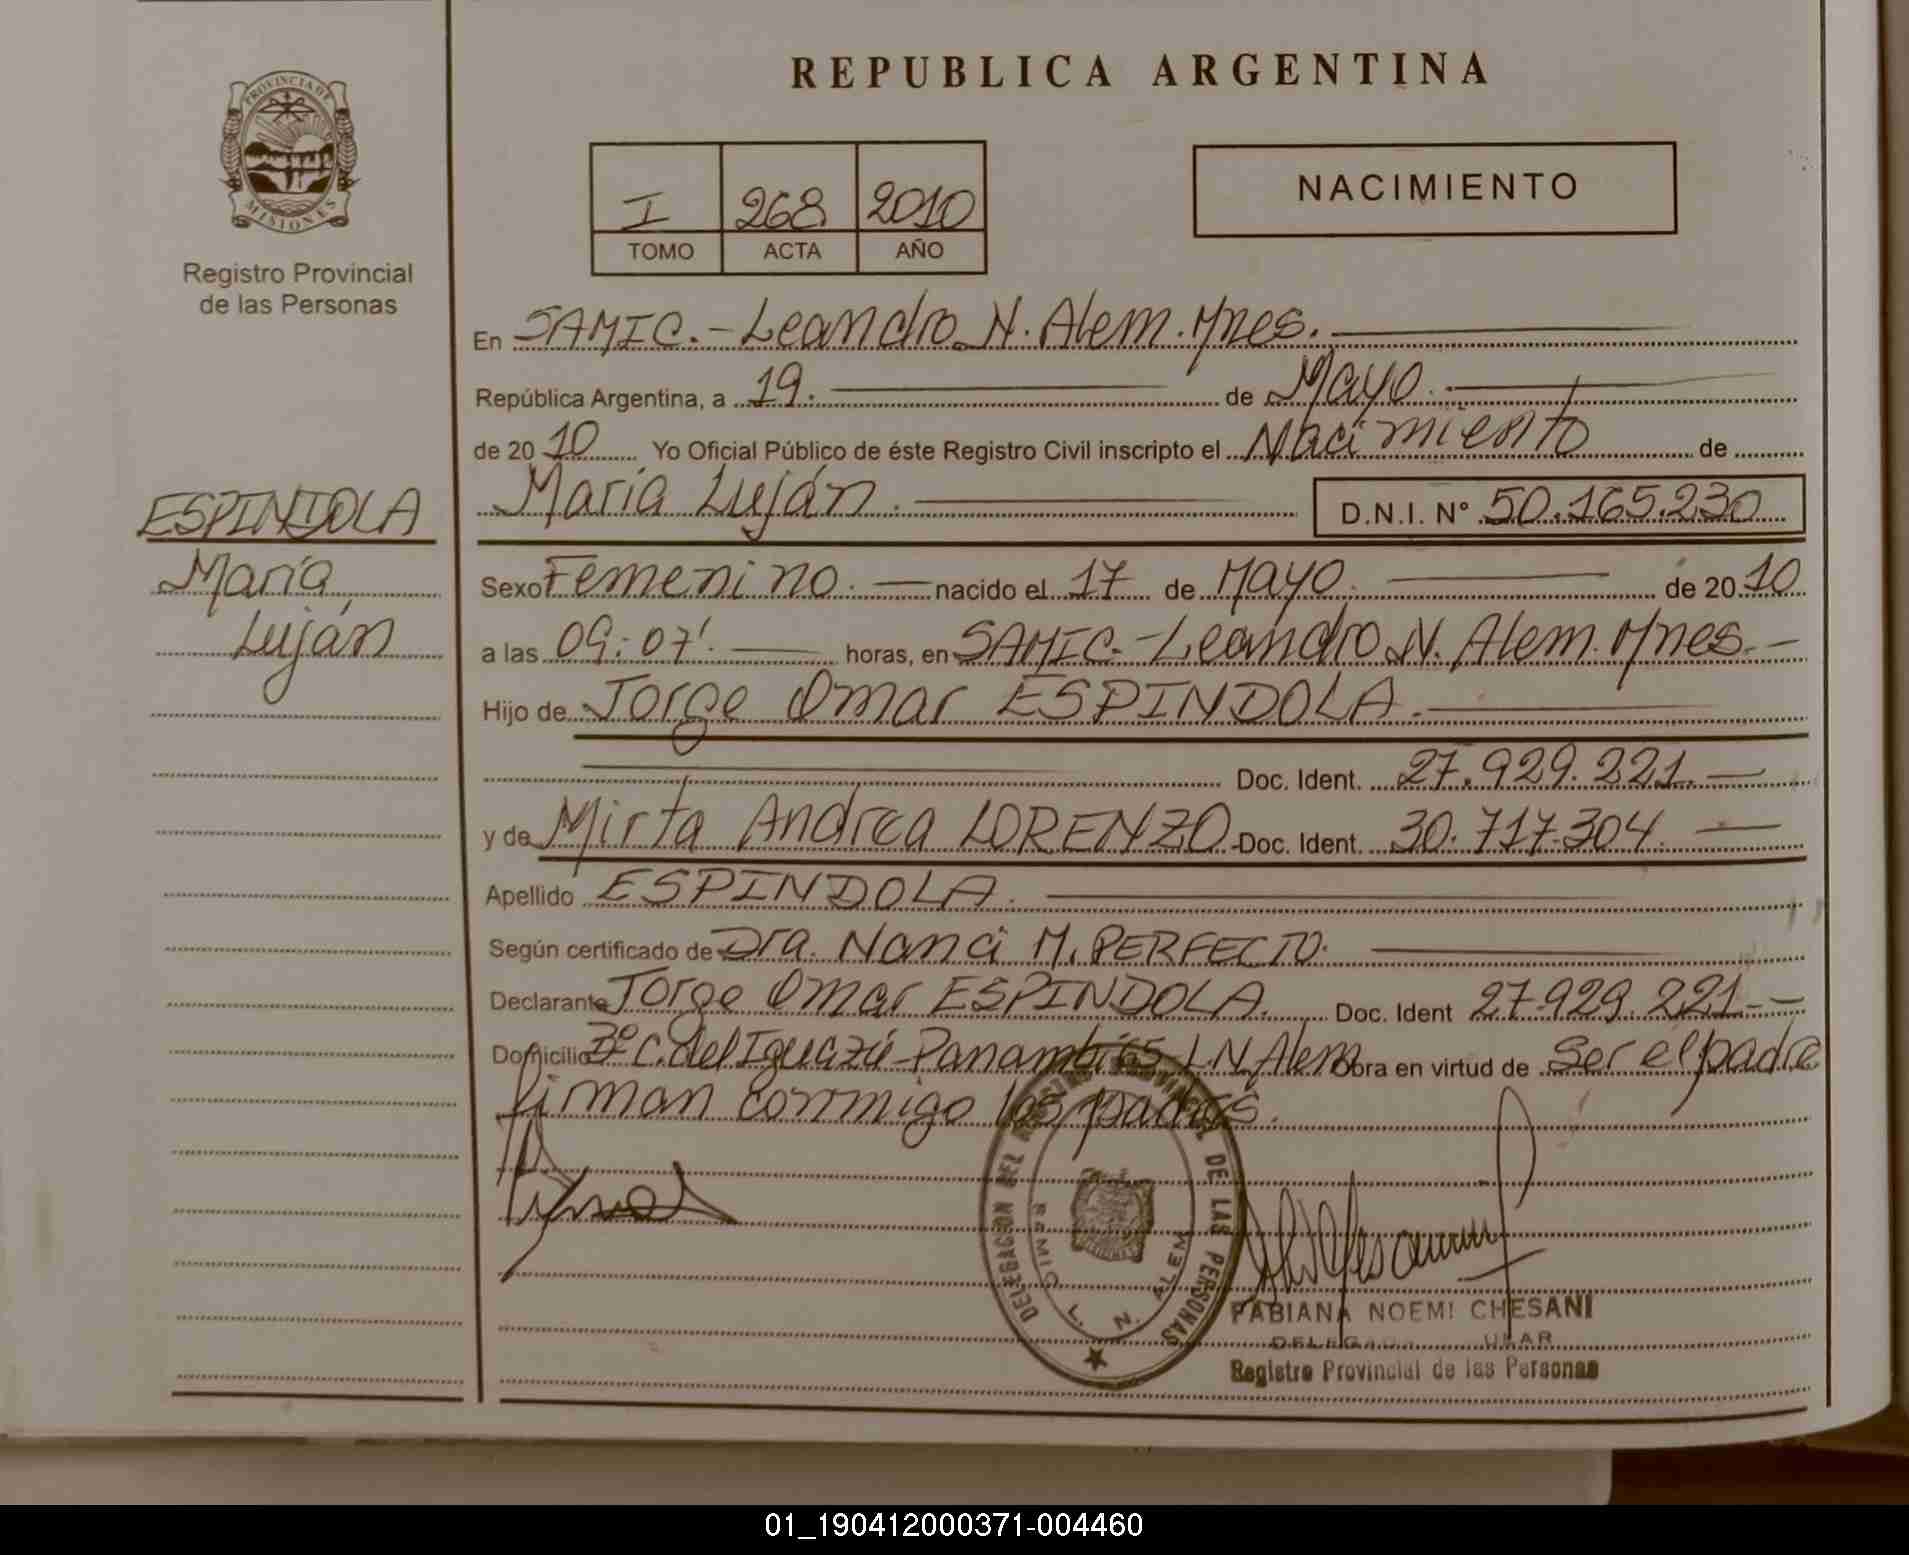 REPUBLICA ARGENTINA
PROVINCIA DE
MISIONES
Registro Provincial
de las Personas
I 268 2010
TOMO ACTA AÑO
NACIMIENTO
En SAMIC.-Leandro N. Alem. Mnes.
República Argentina, a 19. de Mayo.
de 2010 Yo Oficial Público de éste Registro Civil inscripto el Nacimiento de
María Luján. D.N.I. N° 50.165.230
ESPINDOLA
María
Luján
Sexo Femenino. nacido el 17 de Mayo. de 2010
a las 09:07'. horas, en SAMIC.-Leandro N. Alem. Mnes.-
Hijo de Jorge Omar ESPINDOLA.
Doc. Ident. 27.929.221.
y de Mirta Andrea LORENZO.-Doc. Ident. 30.717.304.
Apellido ESPINDOLA.
Según certificado de Dra. Nanci M. PERFECTO.
Declarante Jorge Omar ESPINDOLA. Doc. Ident 27.929.221.-
Domicilio Bº C. del Iguazú-Panambí 65-L N Alem Obra en virtud de Ser el padre
firman conmigo los padres.
DELEGACION DEL REGISTRO PROVINCIAL DE LAS PERSONAS
SAMIC L. N. ALEM
FABIANA NOEMI CHESANI
Registro Provincial de las Personas
01_190412000371-004460